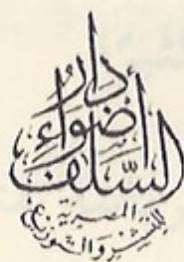 دار
أضواء
السلف
المصرية
للنشر والتوزيع